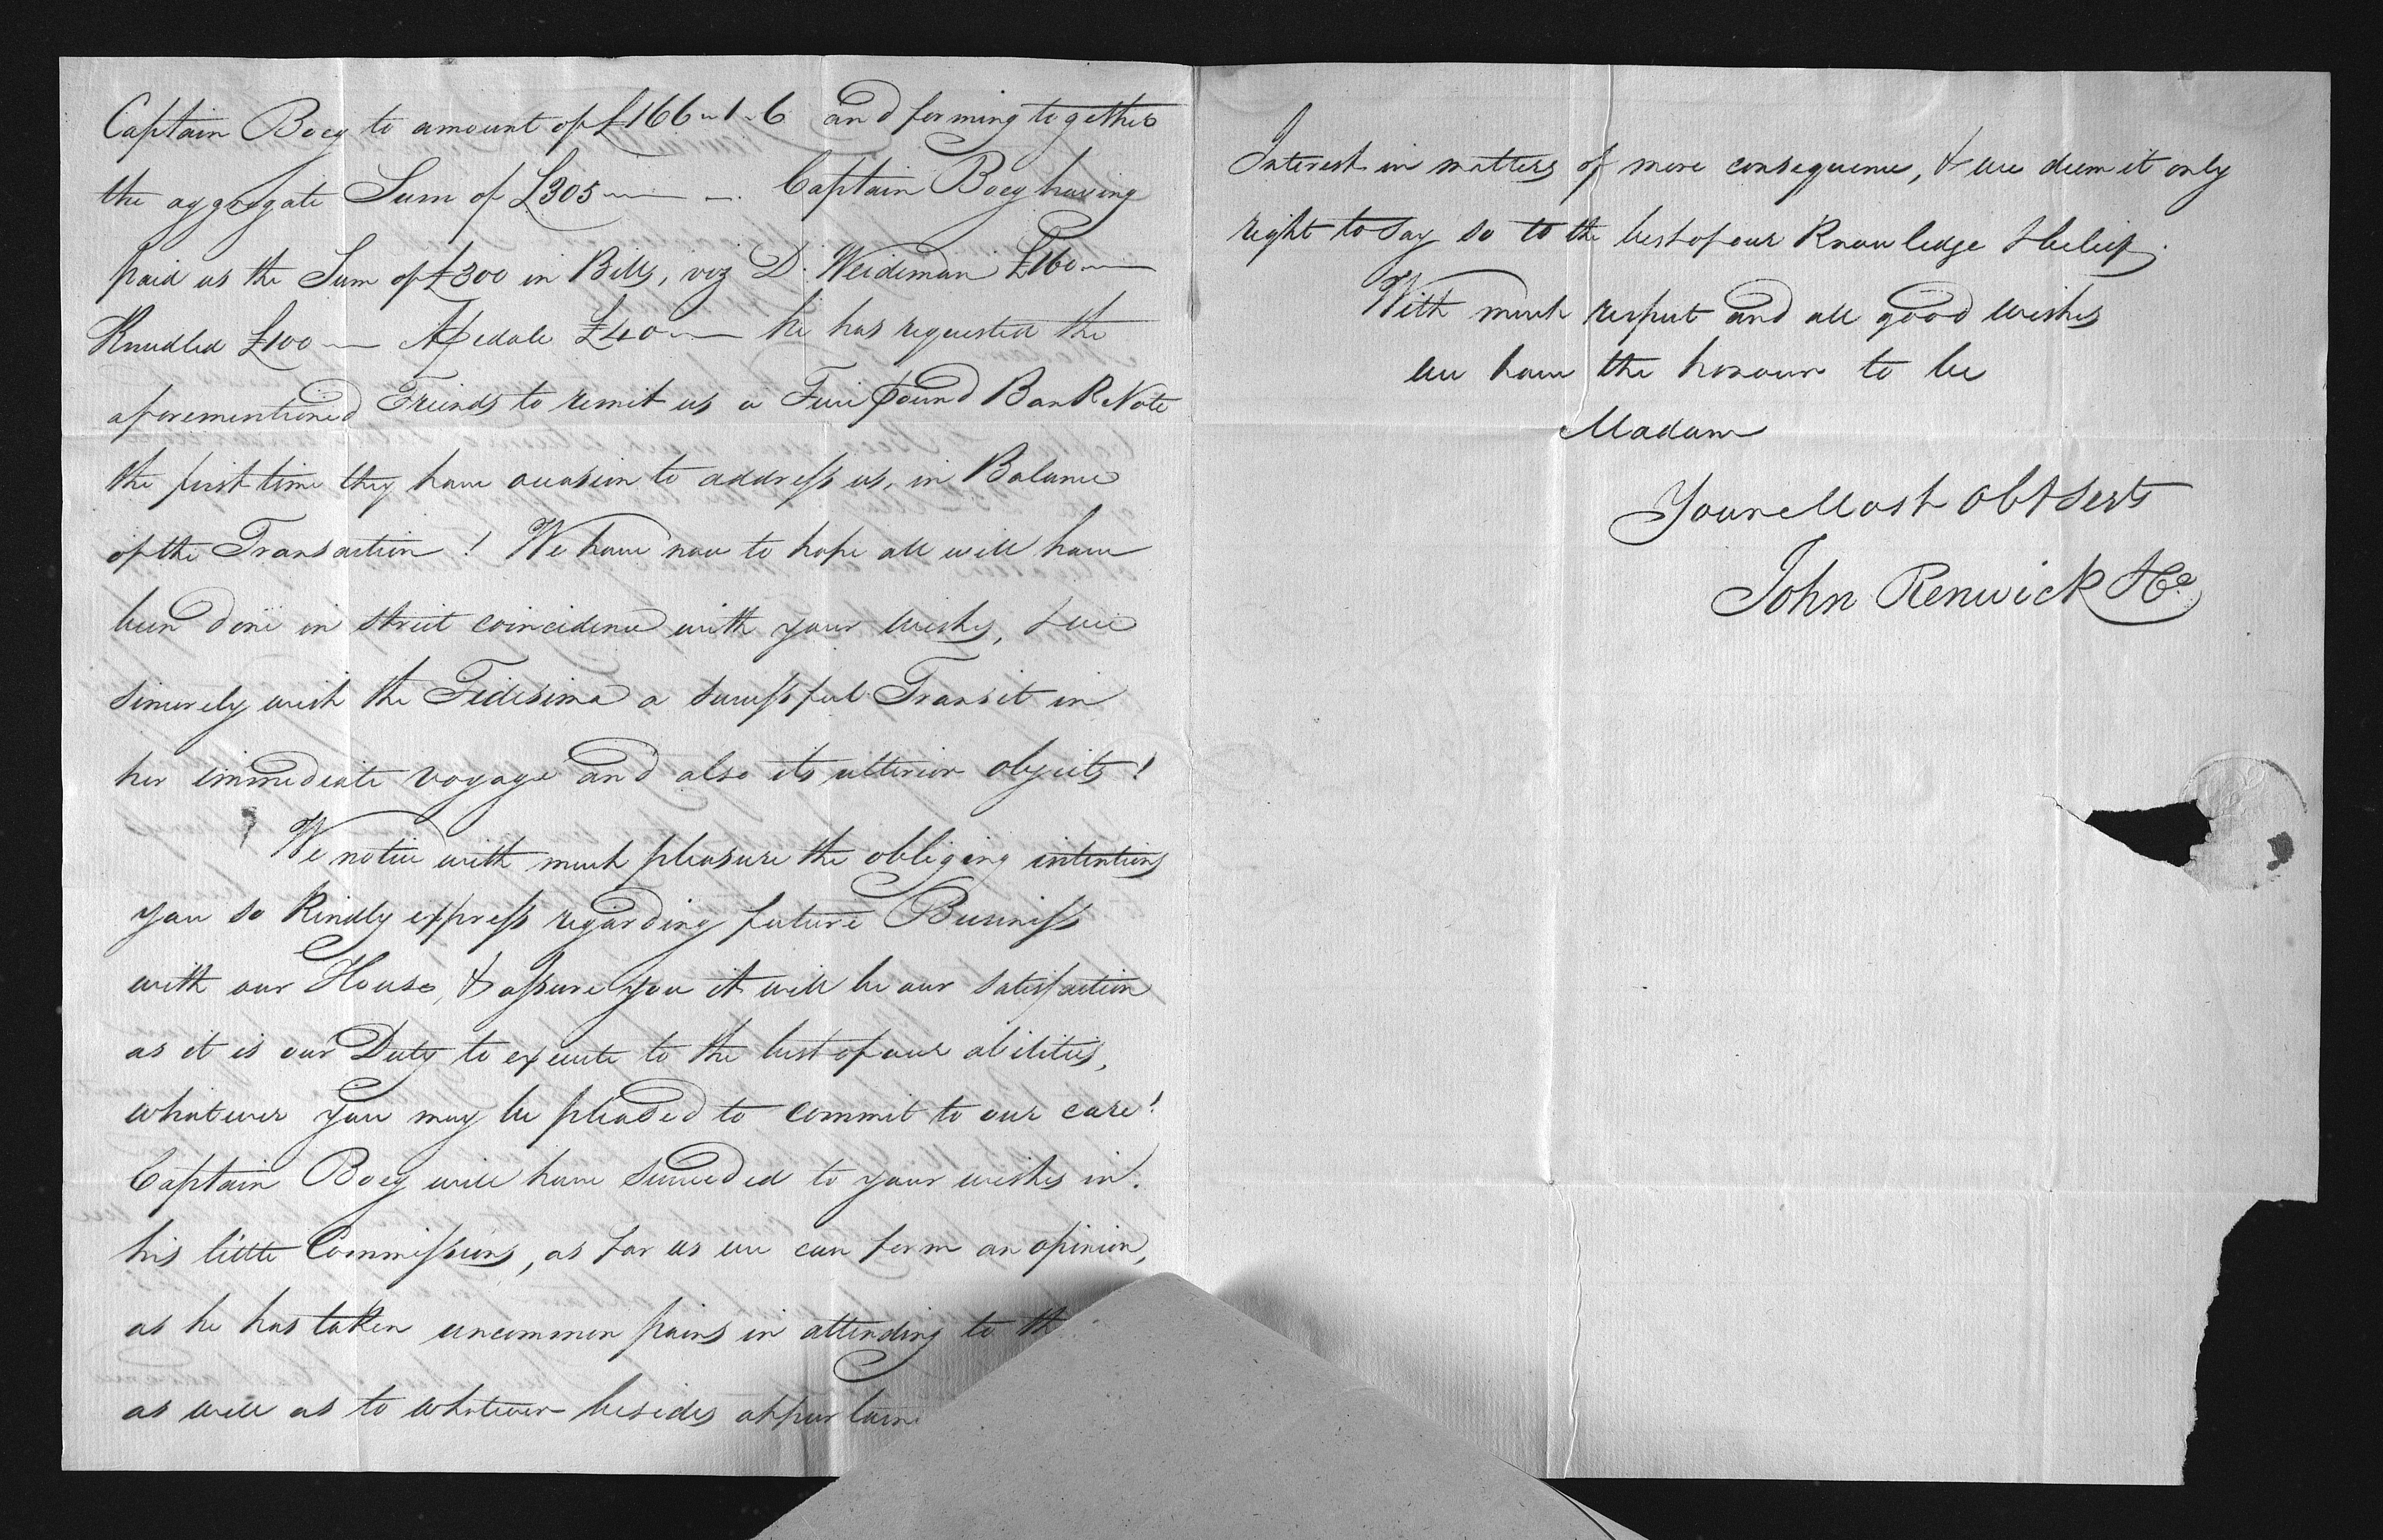 Captain Boey to amount of £166 " 1 " 6 and forming together
the aggregate Sum of £305 Captain Boey having
paid us the Sum of £300 in Bills, viz D. Weideman £160
£100 £40 he has requested the
aforementioned Friends to remit us a Five pound Bank Note
the first time they have occasion to address us, in Balance
of the Transaction! We have now to hope all will have
been done in strict coincidence with your wishes, & we
sincerely wish the a successful Transit in
her immediate voyage and also its ulterior objects!
We notice with much pleasure the obliging intentions
you so kindly express regarding future Business
with our House, & assure you it will be our satisfaction
as it is our Duty to execute to the best of our abilities,
whatever you may be pleased to commit to our care!
Captain Boey will have succeeded to your wishes in
his little Commissions, as far as we can form an opinion,
as he has taken uncommon pains in attending to
as well as to whatever besides
Interest in matters of more consequence, & we deem it only
right to say so to the best of our Knowledge & belief.
With much respect and all good wishes
we have the honour to be
Madam
Your Most Obt Serts
John Renwick & Co